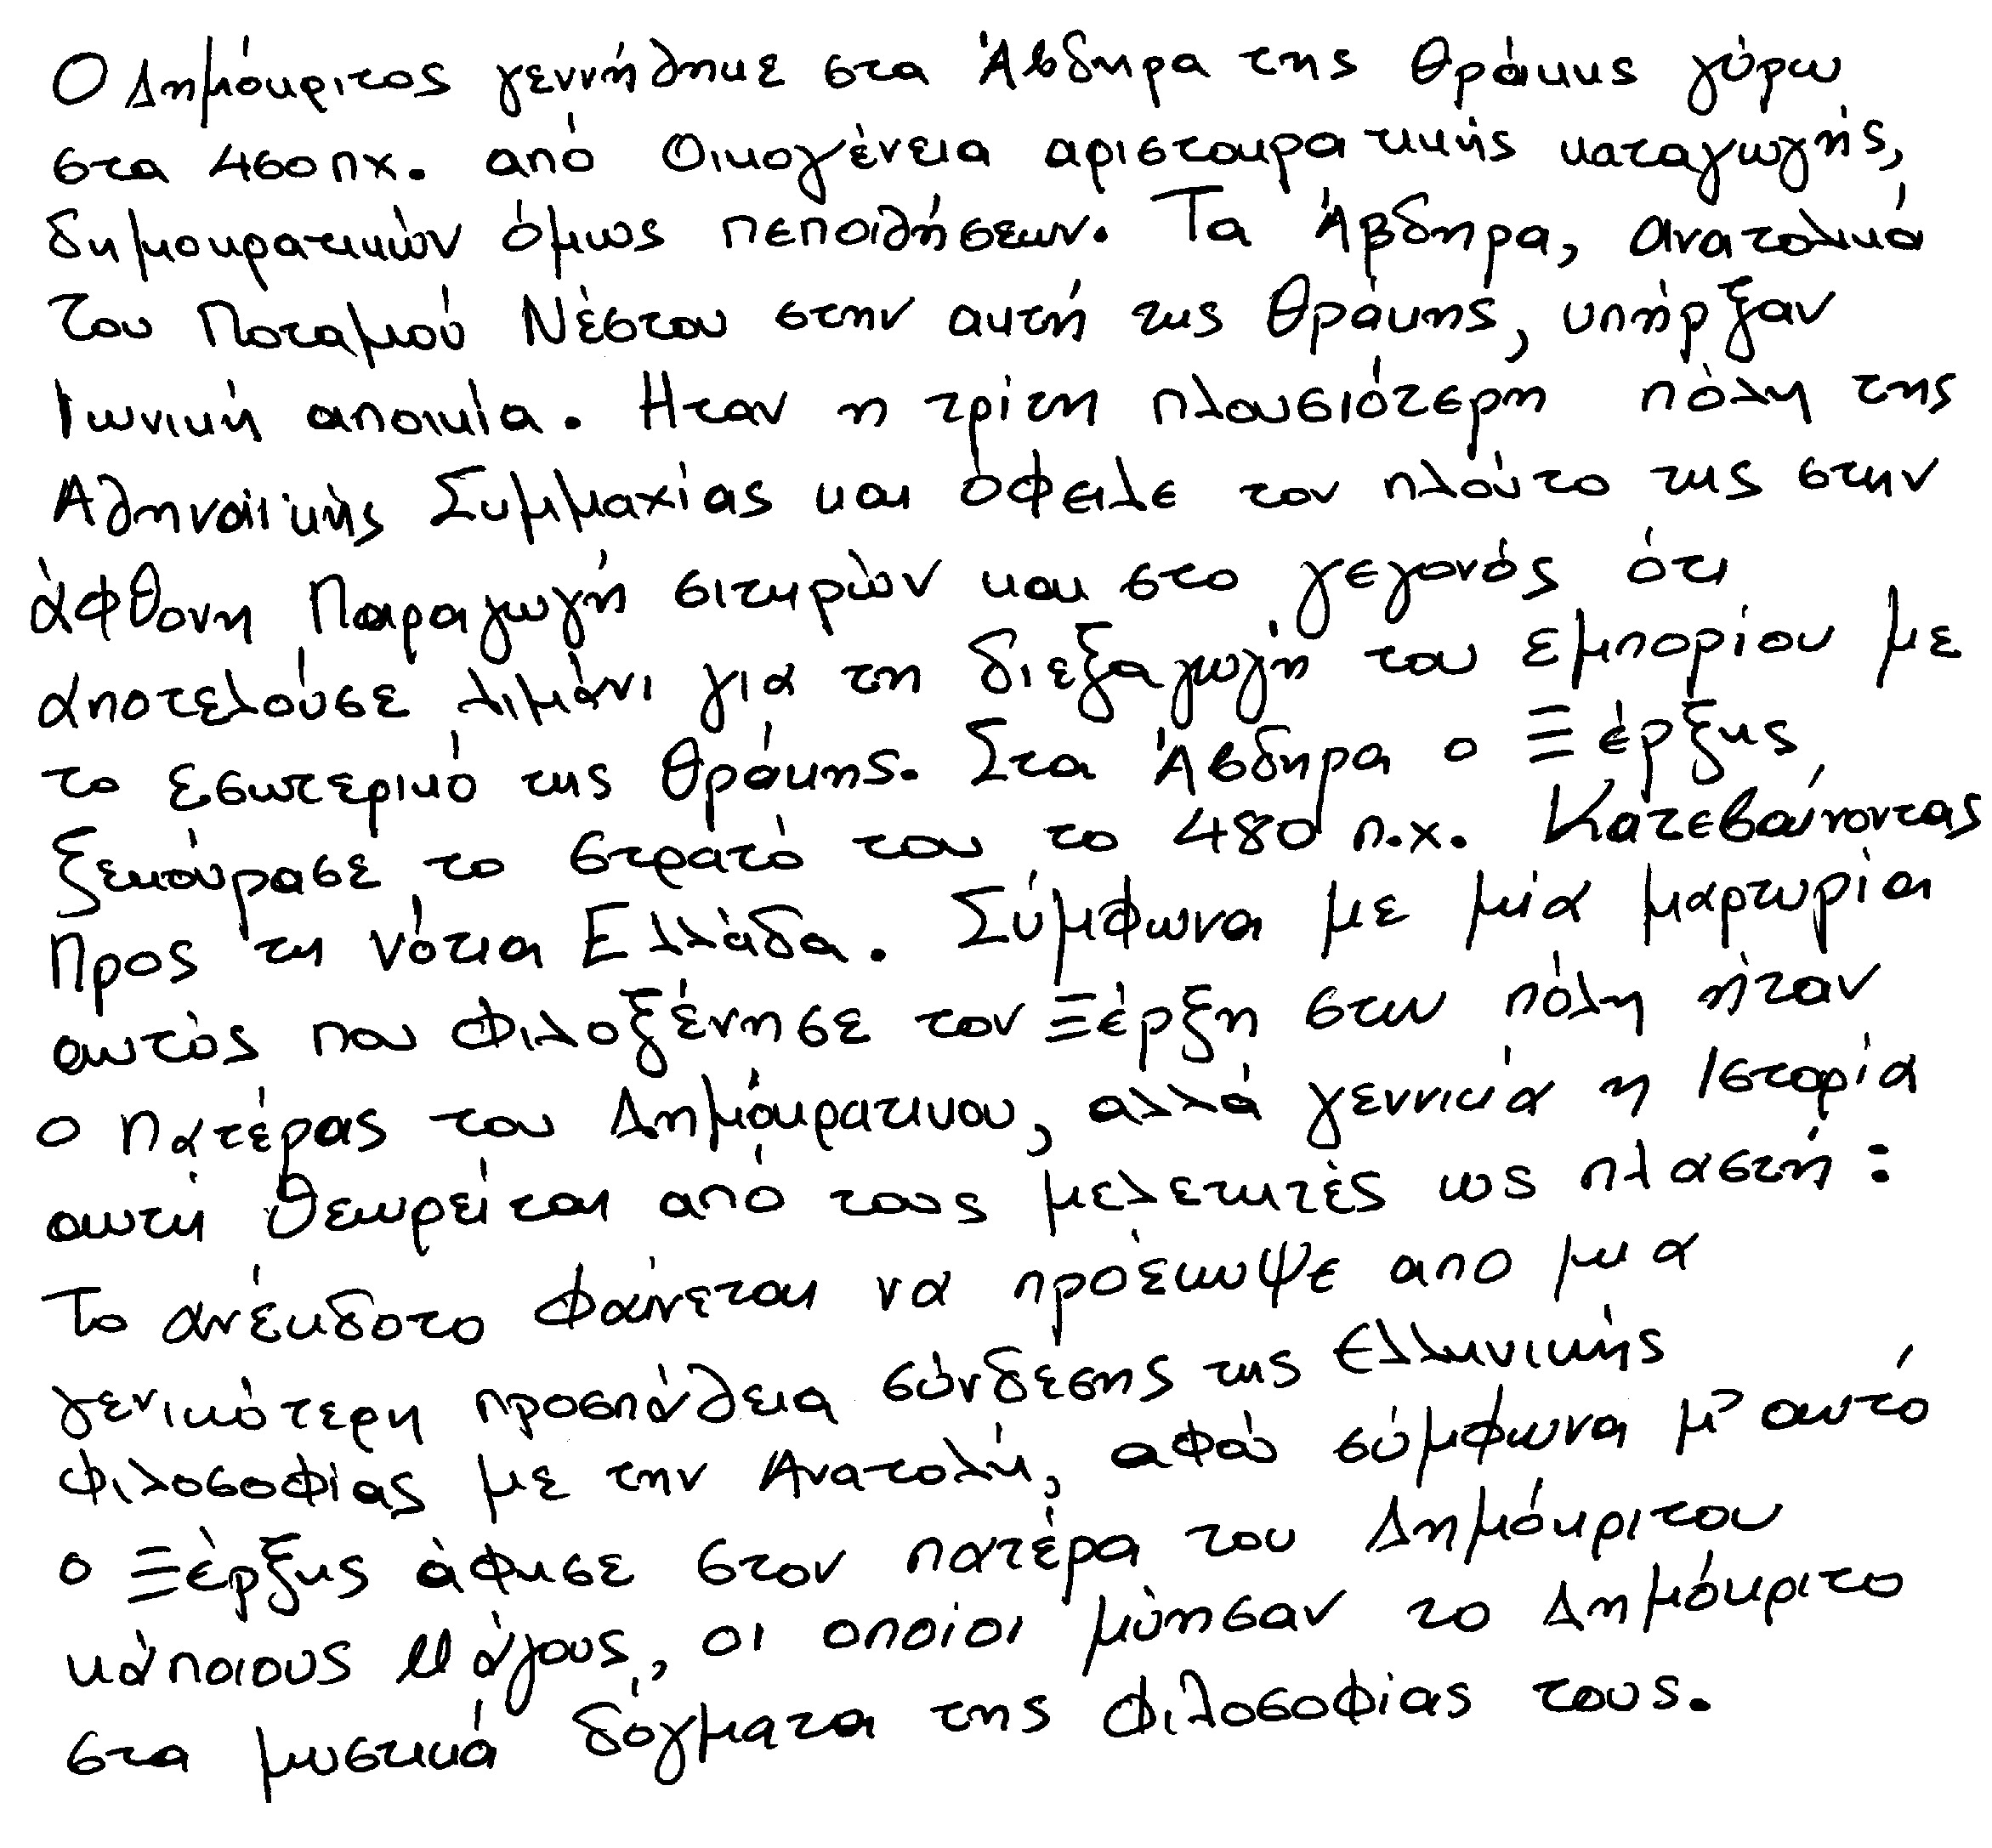 Ο Δημόκριτος γεννήθηκε στα Άβδηρα της Θράκης γύρω
στα 460 πχ. από Οικογένεια αριστοκρατικής καταγωγής,
δημοκρατικών όμως πεποιθήσεων. Τα Άβδηρα, ανατολικά
του Ποταμιού Νέστου στην αυτή της Θράκης, υπήρξαν
Ιωνική αποικία. Ηταν η τρίτη πλουσιότερη πόλη της
Αθηναϊκής Συμμαχίας και όφειλε τον πλούτο της στην
άφθονη Παραγωγή σιτηρών και στο γεγονός ότι
αποτελούσε λιμάνι για τη διεξαγωγή του εμπορίου με
το εσωτερικό της Θράκης. Στα Άβδηρα ο Ξέρξης
ξεκούρασε το στρατό του το 480 π.χ. Κατεβαίνοντας
Προς τη νότια Ελλάδα. Σύμφωνα με μία μαρτυρία
αυτός που φιλοξένησε τον Ξέρξη στην πόλη ήταν
ο πατέρας του Δημόκρατινου, αλλά γεννικά η Ιστορία
αυτή θεωρείται από τους μελετητές ως πλαστή:
Το ανέκδοτο φαίνεται να προέκυψε απο μια
γενικότερη προσπάθεια σύνδεσης της Ελληνικής
φιλοσοφίας με την Ανατολή, αφού σύμφωνα μ' αυτό
ο Ξέρξης άφησε στον πατέρα του Δημόκριτου
κάποιους Μάγους, οι οποίοι μύησαν το Δημόκριτο
στα μυστικά δόγματα της φιλοσοφίας τους.